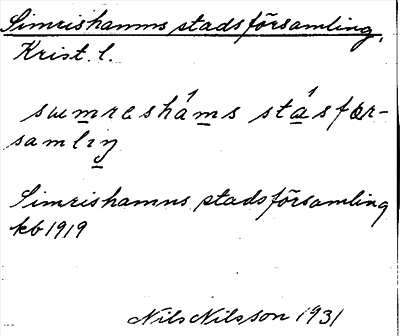 Simrishamns stadsförsamling,
Krist. l.
sumresháms stásfœr-
samliŋ
Simrishamns stadsförsamling
kb 1919
Nils Nilsson 1931